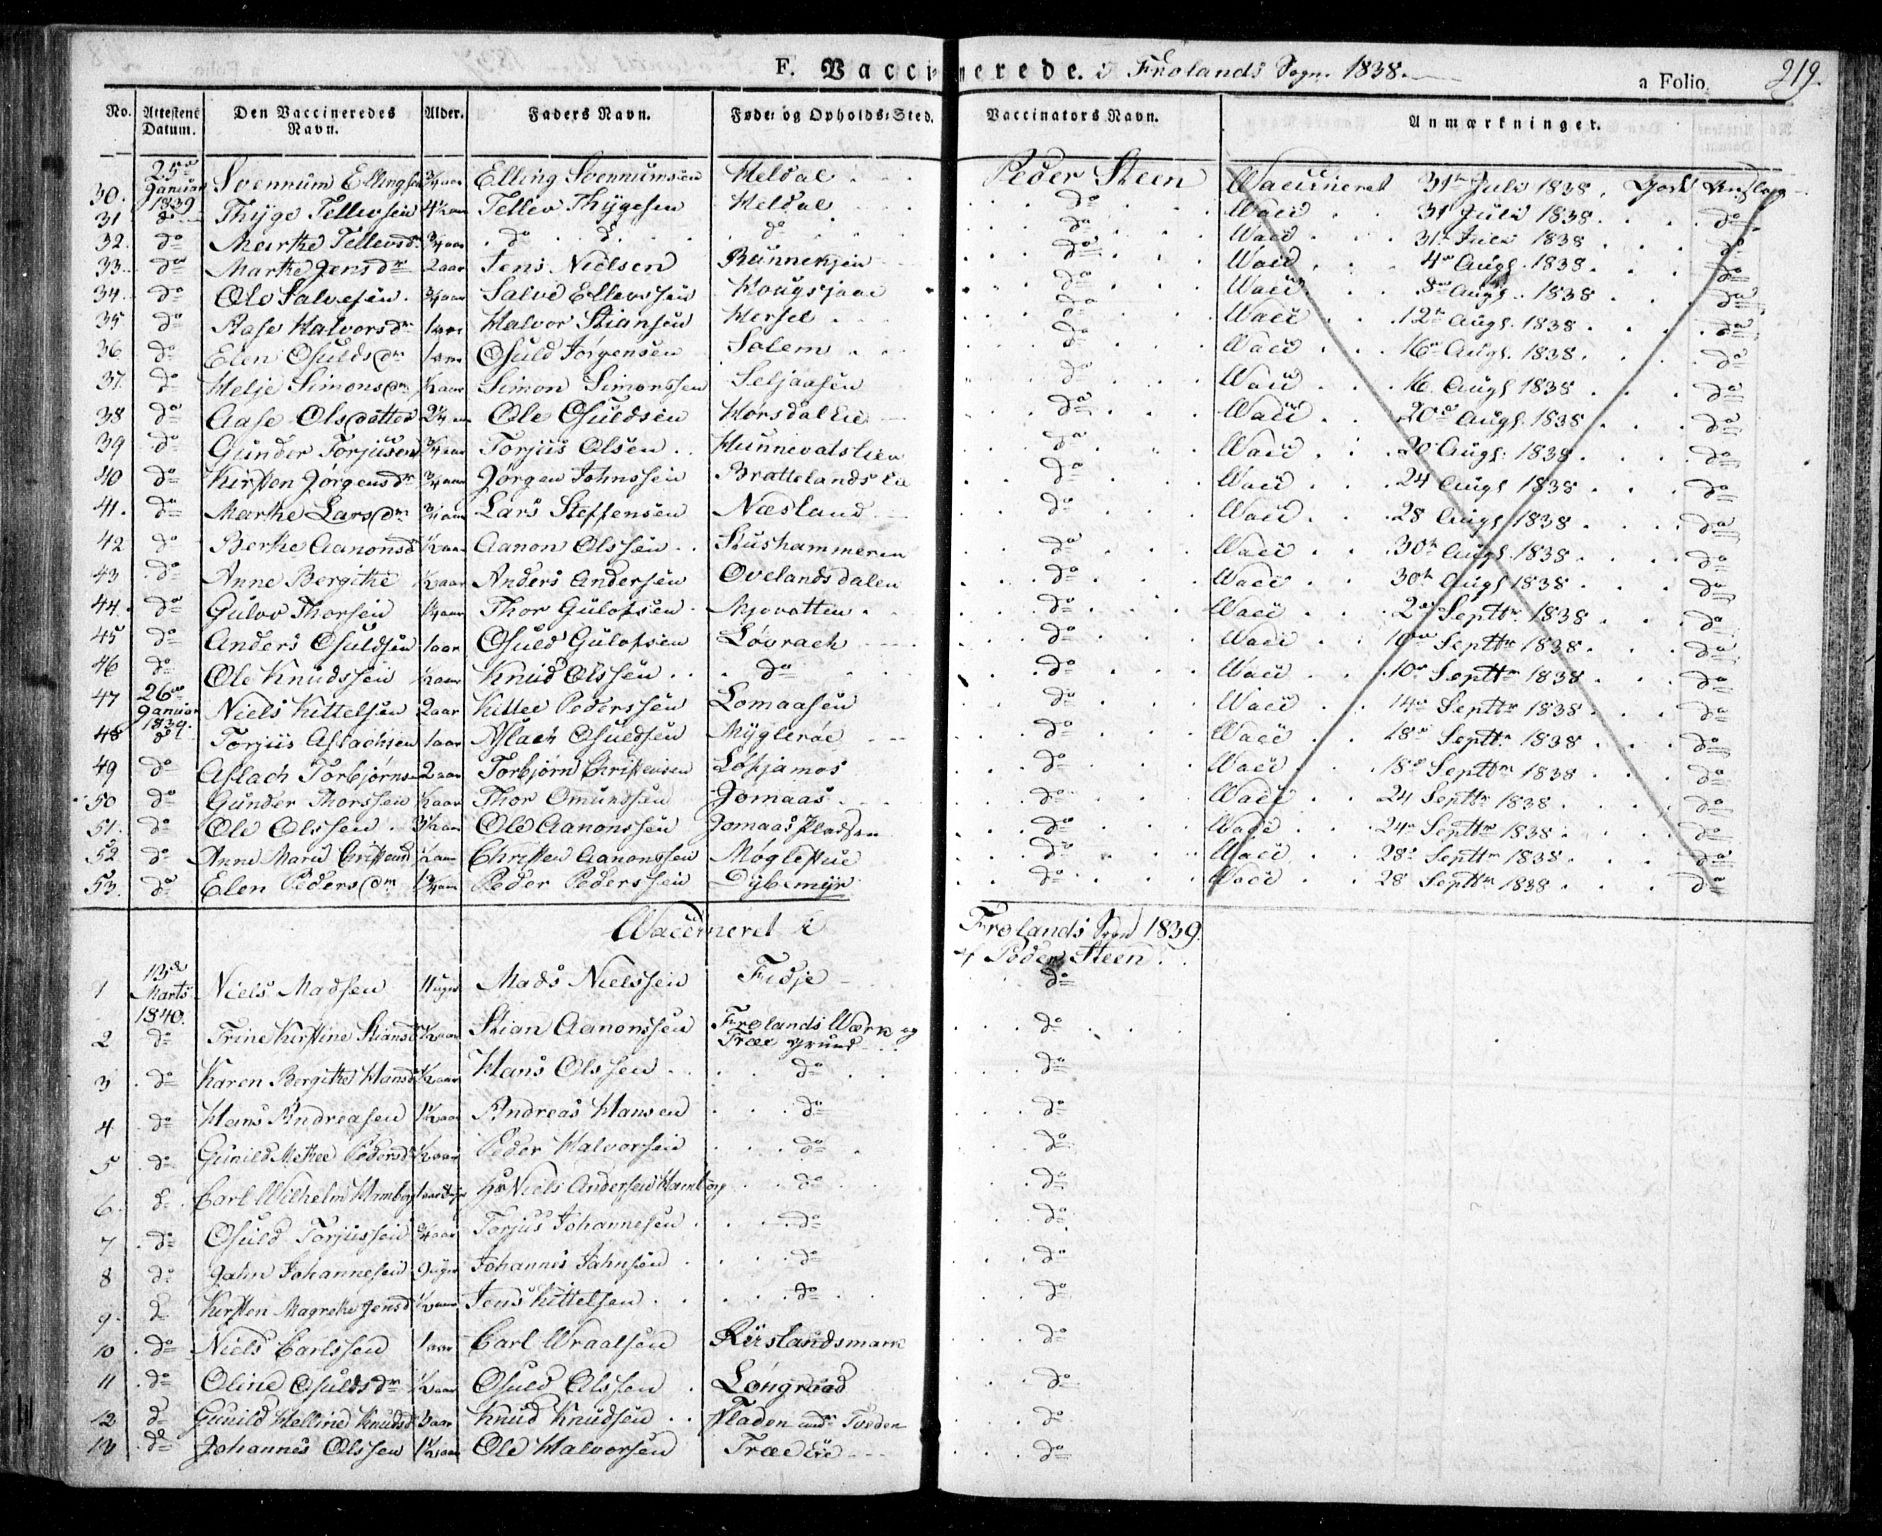 F. Vaccinerede. i Frolands Sogn 1838. a Folio. 219.
No. Attestens Datum. Den Vaccineredes Navn. Alder. Faders Navn. Føde- og Opholds-Sted. Vaccinators Navn. Anmærkninger.
30. 25de Januar 1839 Svennum Ellings 3/4 aar Elling Svennumsen Heldal Peder Steen Vaccineret 31te Juli 1838. Godt Anslag
31 do Thyge Tellevsen 4 1/2 aar Tellev Thygesen Heldal do Vacc 31 Juli 1838. do
32. do Marthe Tellevsd. 3/4 aar do do do do Vacc 31te Juli 1838 do
33. do Marthe Jensdr 2 aar Jens Nielsen Bunnekjen do Vacc 4de Augs. 1838. do
34. do Ole Salvesen. 3/4 aar Salve Ellevssen Hougsjaae do Vacc Augs. 1838 do
35 do Aase Halvorsdr 1 aar Halvor Stiansen Hersel do Vacc 12te Augs. 1838. do
36 do Elen Osuldsdr 1 aar Osuld Jørgensen Salem do Vacc 16de Augs. 1838. do
37. do Helje Simonsdr 1/2 aar Simon Simonssen Seljaasen do Vacc 16 Augs 1838 do
38 do Aase Olsdatter 2 1/4 aar Ole Osuldsen Horsdal Eie do Vacc 20de Augs. 1838 do
39 do Gunder Torjusen 3/4 aar Torjus Olsen Hunnevatslien do Vacc 20 Augs. 1838. do
40 do Kirsten Jørgensdr 3/4 aar Jørgen Johnssen Brattelands Eie do Vacc 24 Augs 1838 do
41. do Marthe Larsdr 3/4 aar Lars Steffensen Næsland do Vacc 28 Augs. 1838 do
42 do Berthe Aanonsd 1/2 aar Aanon Olssen Stushammeren do Vacc 30te Augs. 1838. do
43 do Anne Bergithe 1/2 aar Anders Andersen Ovelandsdalen do Vacc 30te Augs 1838 do
44. do Gulov Thorsen 1/4 aar Thor Gulofsen Mjovatten do Vacc 2den Septbr 1838 do
45 do Anders Osuldsen 1 aar Osuld Gulofsen Løvrach do Vacc 10de Septbr 1838. do
46 do Ole Knudssen 1/2 aar Knud Olssen do do Vacc 10de Septbr 1838 do
47 26de Januar 1839. Niels Kittelsen 2 aar Kittel Pederssen Lomaasen do Vacc 14de Septbr 1838. do
48 do Torjus Aslachsen 1 aar Aslach Osuldsen Myglerøe do Vacc 18de Septbr. 1838 do
49 do Aslach Torbjørnsen 2 aar Torbjørn Christensen Løkjamos do Vacc 18de Septbr 1838 do
50 do Gunder Thorssen 1/2 aar Thor Omundsen Jomaas do Vacc 24 Septbr 1838. do
51. do Ole Olssen 3 1/2 aar Ole Aanonssen Jomaas Pladsen do Vacc 24de Septbr 1838. do
52 do Anne Marie Christensd 1/2 aar Christen Aanonssen Møglestue do Vacc 28de Septbr 1838. do
53. do Elen Pedersdr 1 3/4 aar Peder Pederssen Dybemyr do Vacc 28 Septbr 1838 do
Vaccineret i Frolands Sogn 1839.
af Peder Steen
1 13de Marts 1840. Niels Madsen 11 uger Mads Nielssen Fidje do
2 do Trine Kirstine Stiansd 1/2 aar Stian Aanonssen Frolands Værk og Træe grund do
3 do Karen Bergithe Hansd 1/2 aar Hans Olssen do do
4 do Hans Andreasen 1 1/2 aar Andreas Hansen do do
5 do Gunild Methee Pedersd 1/2 aar Peder Halvorsen do do
6. do Carl Wilhelm Hamborg Hr Niels Andersen Hamborg do do
7 do Osuld Torjussen 3/4 aar Torjus Johannesen do do
8 do Jahn Johannesen 9 uger Johannes Jahnsen do do
9. do Kirsten Magrethe Jensd 1/2 aar Jens Kittelsen do do
10 do Niels Carlssen 1 aar Carl Wraalsen Risslandsmark do
11 do Oline Osuldsdr 1/2 aar Osuld Olssen Longruad do
12 do Gunild Helline Knudsd 3 aar Knud Knudsen Fladen und. Tveden do
13 do Johannes Olssen 1 1/2 aar Ole Halvorsen Træe Eie do